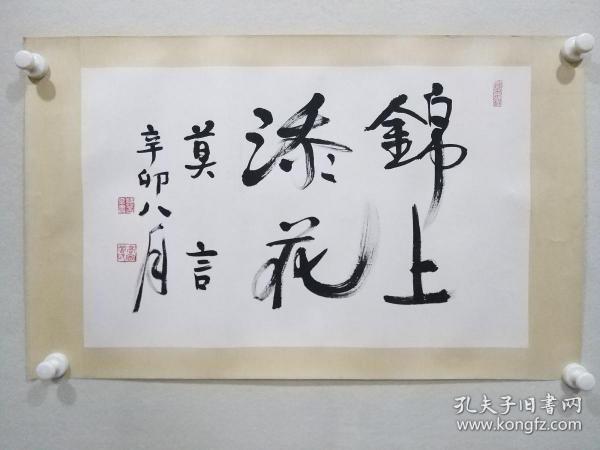 錦上
添花
莫言
辛卯八月
孔夫子旧书网
www.kongfz.com